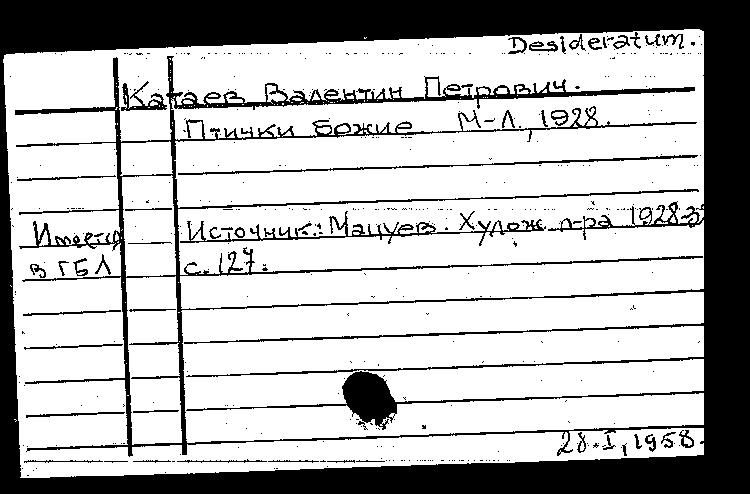 Desideratum.
Катаев, Валентин Петрович.
Птички божие. М-Л, 1928.
Имеется
в ГБЛ
Источник: Мацуев. Худож. л-ра 1928-32
с. 127.
28.I, 1958.